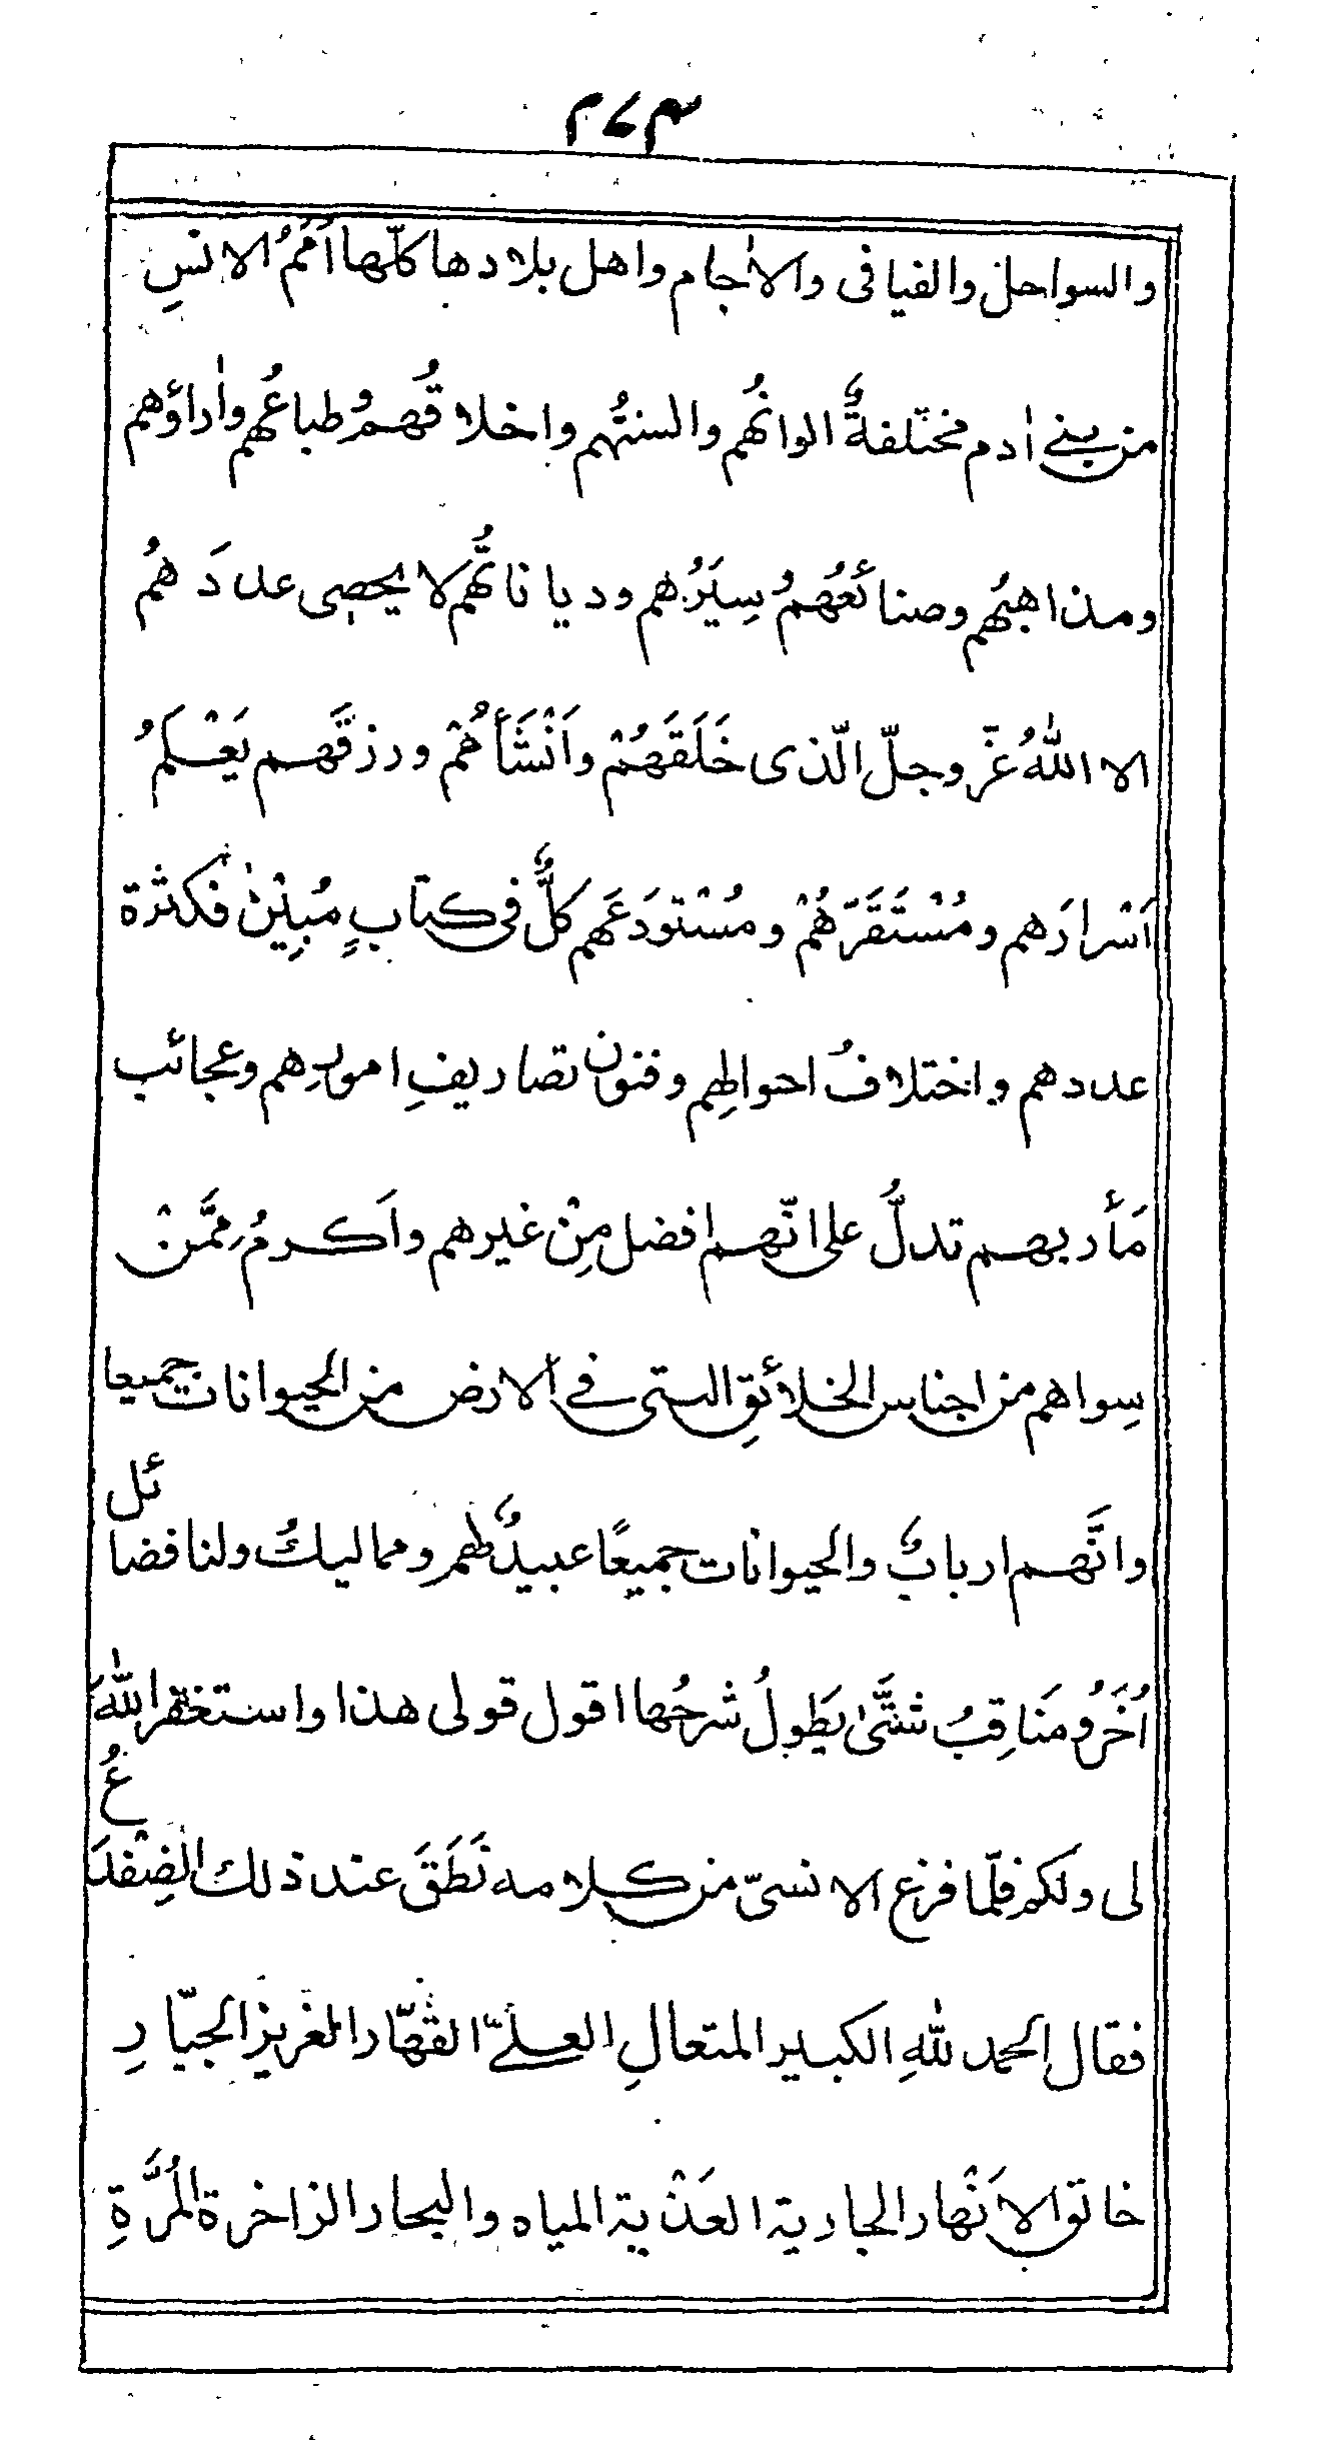 ٢٧٣
والسواحل والفيافى والاٰجام واهل بلادها كلّها اُمَمُ الانسِ
من بنے اٰدم مختلفةٌ الوانُهم والسنتُهم واخلاقُهمُ وطباعُهم واٰراؤهم
ومذاهبُهم وصنائعُهُمُ سِيَرُهم ودياناتُهم لا يحصى عددَهمُ
الا اللهُ عزّ وجلّ الّذى خَلَقَهُمْ واَنْشَأَهُمْ ورزقَهم يَعْلَمُ
اَسْرارَهم ومُسْتَقَرَّهُمْ ومُسْتودَعَهم كلٌّ فى كتابٍ مُبِيْنٍ فكثرة
عددهم واختلافُ احوالِهم وفنون تصاريفِ امورِهم وعجائب
مَأربهم تدلُّ على انّهم افضل مِنْ غيرهم واَكرمُ مِمَّنْ
سِواهم من اجناس الخلائقِ التى فے الارض من الحيوانات جميعا
وانَّهم اربابٌ والحيوانات جميعًا عبيدٌ لهم ومماليكُ ولنا فضائل
اُخَرُ ومَناقِبُ شتَّىٰ يَطولُ شرحُها اقول قولى هذا واستغفر اللهَ
لى ولكم فلمّا فرغ الانسىّ من كلامه نَطَقَ عند ذلك الضِفْدَعُ
فقال الحمد للهِ الكبير المتعالِ العلےّ القهّار العزيز الجبّارِ
خالق الاَنْهار الجارية العَذْبة المياه والبحار الزاخرة المُرَّةِ